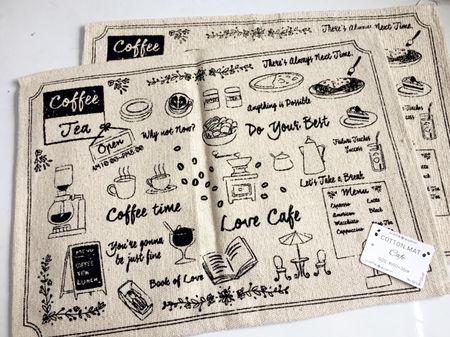 Coffee
There's Always Next Time
Coffee
There's Always Next Time
Tea
Open
Why not Now?
Anything is Possible
Do Your Best
Let's Take a Break
Coffee time
Love Cafe
You're gonna
be just fine
Book of Love
MENU
COFFEE
TEA
LUNCH
Failure Teaches
Success
Menu
Espresso Latte
American Black
Macchiato
Cappuccino
COTTON MAT
Cafe